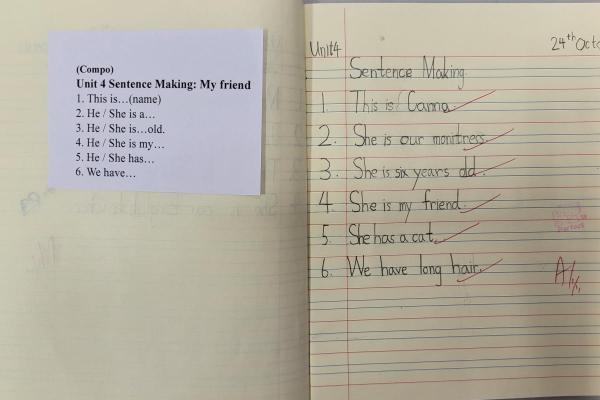 (Compo)
Unit 4 Sentence Making: My friend
1. This is…(name)
2. He / She is a…
3. He / She is…old.
4. He / She is my…
5. He / She has…
6. We have…
Unit4
24th Octo
Sentence Making
1. This is Canna.
2. She is our monitress.
3. She is six years old.
4. She is my friend.
5. She has a cat.
6. We have long hair.